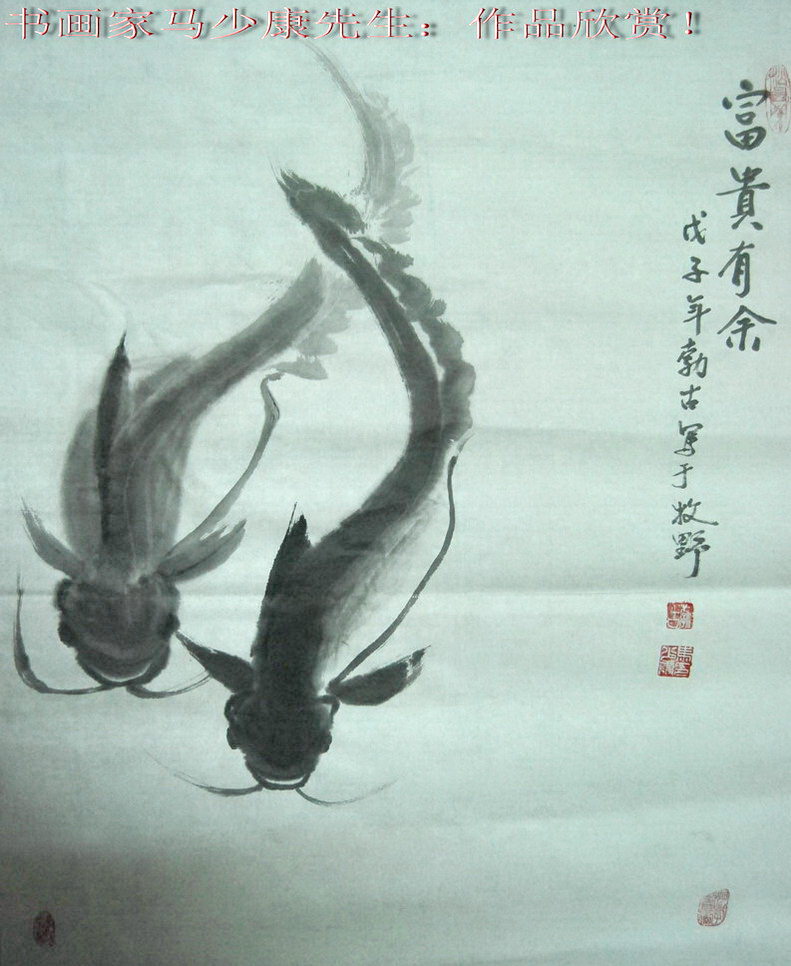 书画家马少康先生：作品欣赏！
富貴有余
戊子年勃古写于牧野